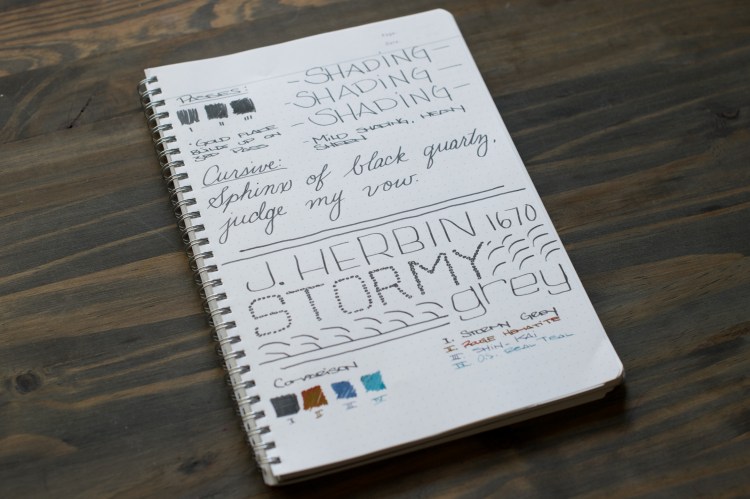 PASSES:
I II III
· GOLD FLAKE
BUILDS UP ON
3RD PASS
- SHADING -
- SHADING -
- SHADING -
- MILD SHADING, HEAVY
SHEEN
Cursive:
Sphinx of black quartz,
judge my vow.
J. HERBIN 1670
STORMY
grey
COMPARISON
I II III IV
I. STORMY GREY
I. ROUGE HEMATITE
SHIN-KAI
TEAL